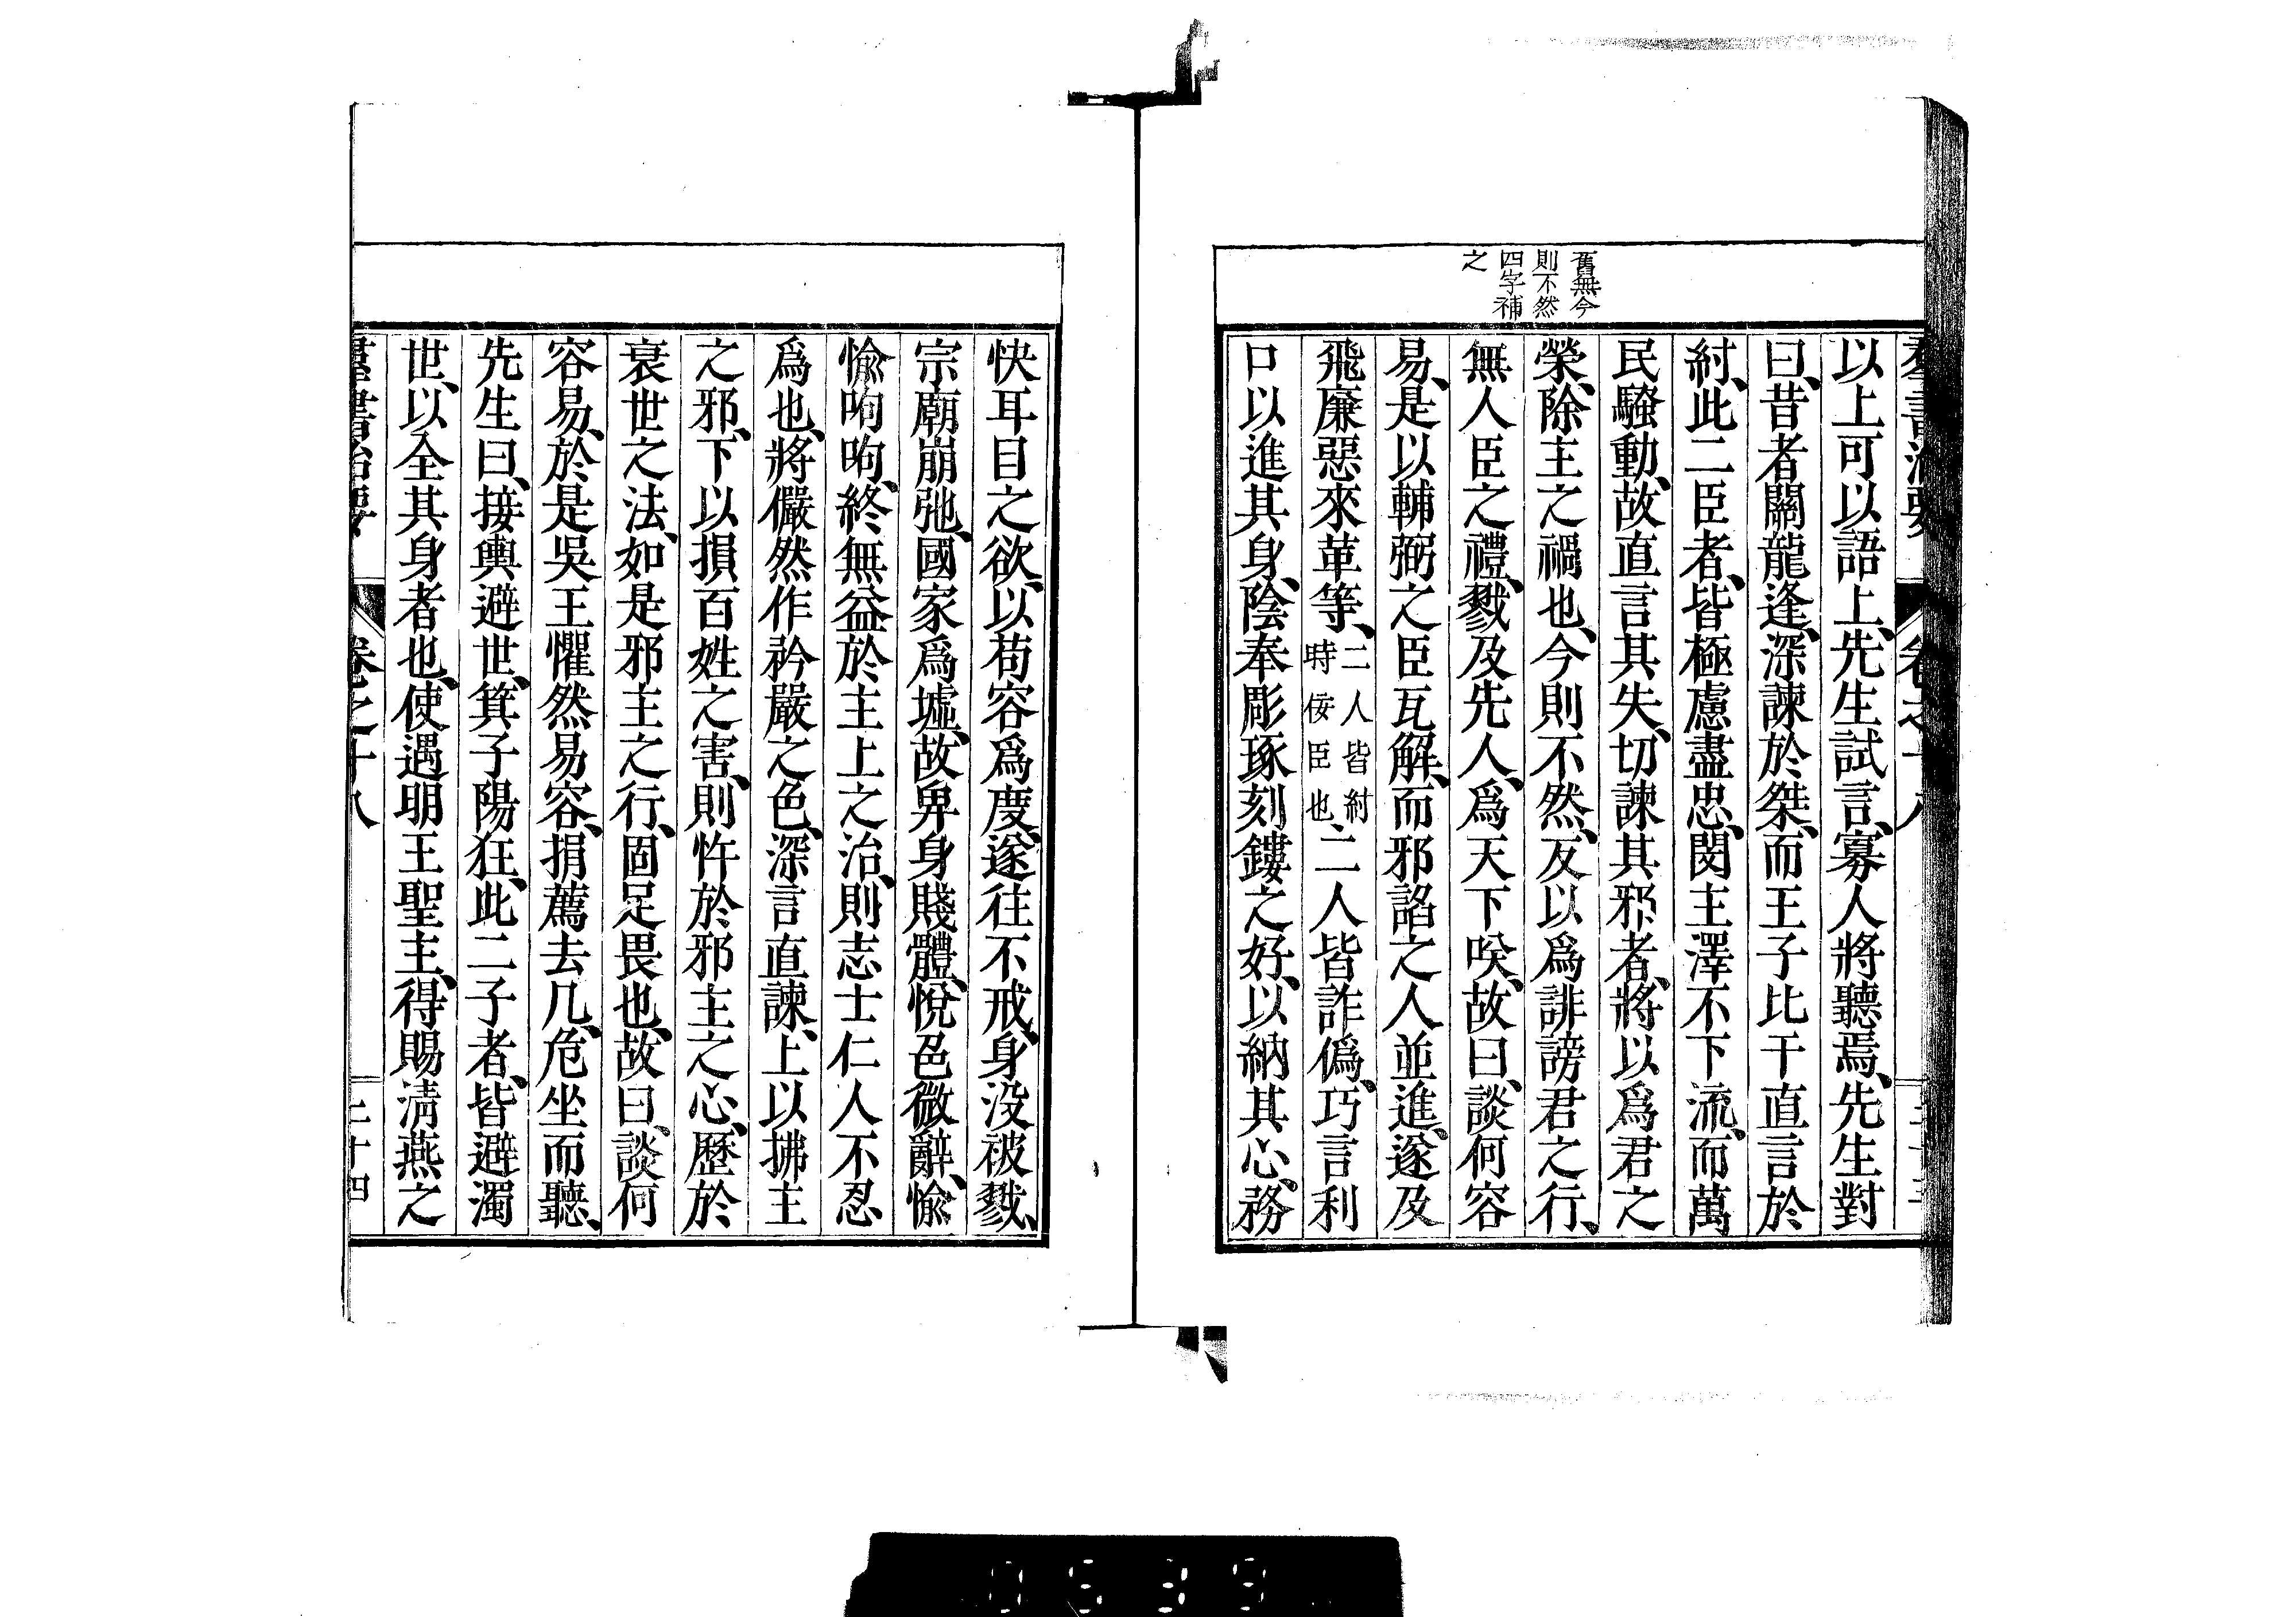 羣書治要 卷之十八 二十三
舊無今
則不然
四字補
之
以上可以語上、先生試言、寡人將聽焉、先生對
曰、昔者關龍逢、深諫於桀、而王子比干直言於
紂、此二臣者、皆極慮盡忠、閔主澤不下流、而萬
民騷動、故直言其失、切諫其邪者、將以爲君之
榮、除主之禍也、今則不然、反以爲誹謗君之行、
無人臣之禮、戮及先人、爲天下唉、故曰、談何容
易、是以輔弼之臣瓦解、而邪諂之人並進、遂及
飛廉惡來革等、二人皆紂時佞臣也、二人皆詐僞、巧言利
口以進其身、陰奉彫琢刻鏤之好、以納其心、務
快耳目之欲、以苟容爲度、遂往不戒、身沒被戮、
宗廟崩弛、國家爲墟、故卑身賤體、悅色微辭、愉
愉呴呴、終無益於主上之治、則志士仁人不忍
爲也、將儼然作矜嚴之色、深言直諫、上以拂主
之邪、下以損百姓之害、則忤於邪主之心、歷於
衰世之法、如是邪主之行、固足畏也、故曰、談何
容易、於是吳王懼然易容、捐薦去几、危坐而聽、
先生曰、接輿避世、箕子陽狂、此二子者、皆避濁
世、以全其身者也、使遇明王聖主、得賜淸燕之
羣書治要 卷之十八 二十四
0539